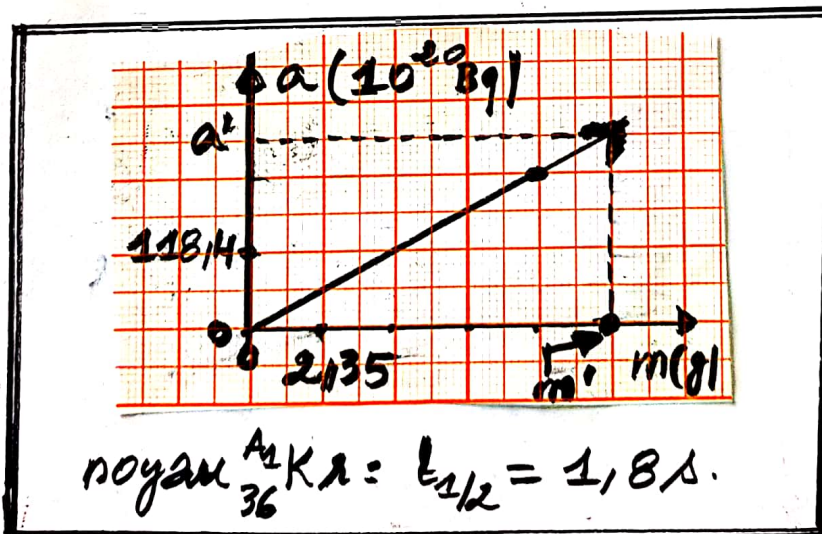 a (10²⁰ Bq)
a'
118,4
0
0 2,35 m' m(g)
noyau ᴬ¹₃₆Kr : t₁/₂ = 1,8 s.